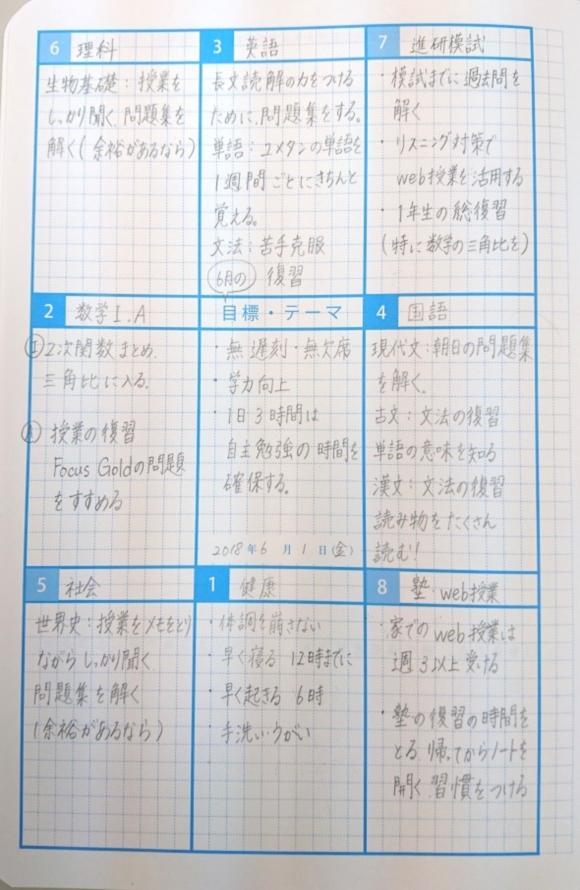 6 理科
生物基礎：授業を
しっかり聞く 問題集を
解く(余裕があるなら)
3 英語
長文読解の力をつける
ために、問題集をする。
単語：ユメタンの単語を
1週間ごとにきちんと
覚える。
文法：苦手克服
6月の 復習
7 進研模試
・模試までに過去問を
解く
・リスニング対策で
web授業を活用する
・1年生の総復習
(特に数学の三角比を)
2 数学I.A
Ⓘ2次関数まとめ.
三角比に入る.
Ⓐ 授業の復習
Focus Goldの問題
をすすめる
目標・テーマ
・無遅刻・無欠席
・学力向上
・1日3時間は
自主勉強の時間を
確保する。
2018年6月1日(金)
4 国語
現代文：朝日の問題集
を解く。
古文：文法の復習
単語の意味を知る
漢文：文法の復習
読み物をたくさん
読む!
5 社会
世界史：授業をメモをとり
ながらしっかり聞く
問題集を解く
(余裕があるなら)
1 健康
・体調を崩さない
・早く寝る 12時までに
・早く起きる 6時
・手洗い・うがい
8 塾・web授業
・家でのweb授業は
週3以上受ける
・塾の復習の時間を
とる 帰ってからノートを
開く習慣をつける